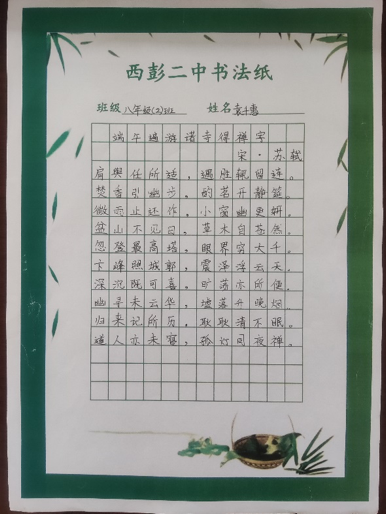 西彭二中书法纸
班级 八年级(2)班 姓名 袁十惠
端午遍游诸寺得禅字
宋·苏轼
肩舆任所适,遇胜辄留连。
焚香引幽步,酌茗开静筵。
微雨止还作,小窗幽更妍。
盆山不见日,草木自苍然。
忽登最高塔,眼界穷大千。
卞峰照城郭,震泽浮云天。
深沉既可喜,旷荡亦所便。
幽寻未云毕,墟落生晚烟。
归来记所历,耿耿清不眠。
道人亦未寝,孤灯同夜禅。